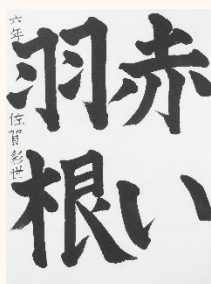 赤い
羽根
六年 佐賀彩世